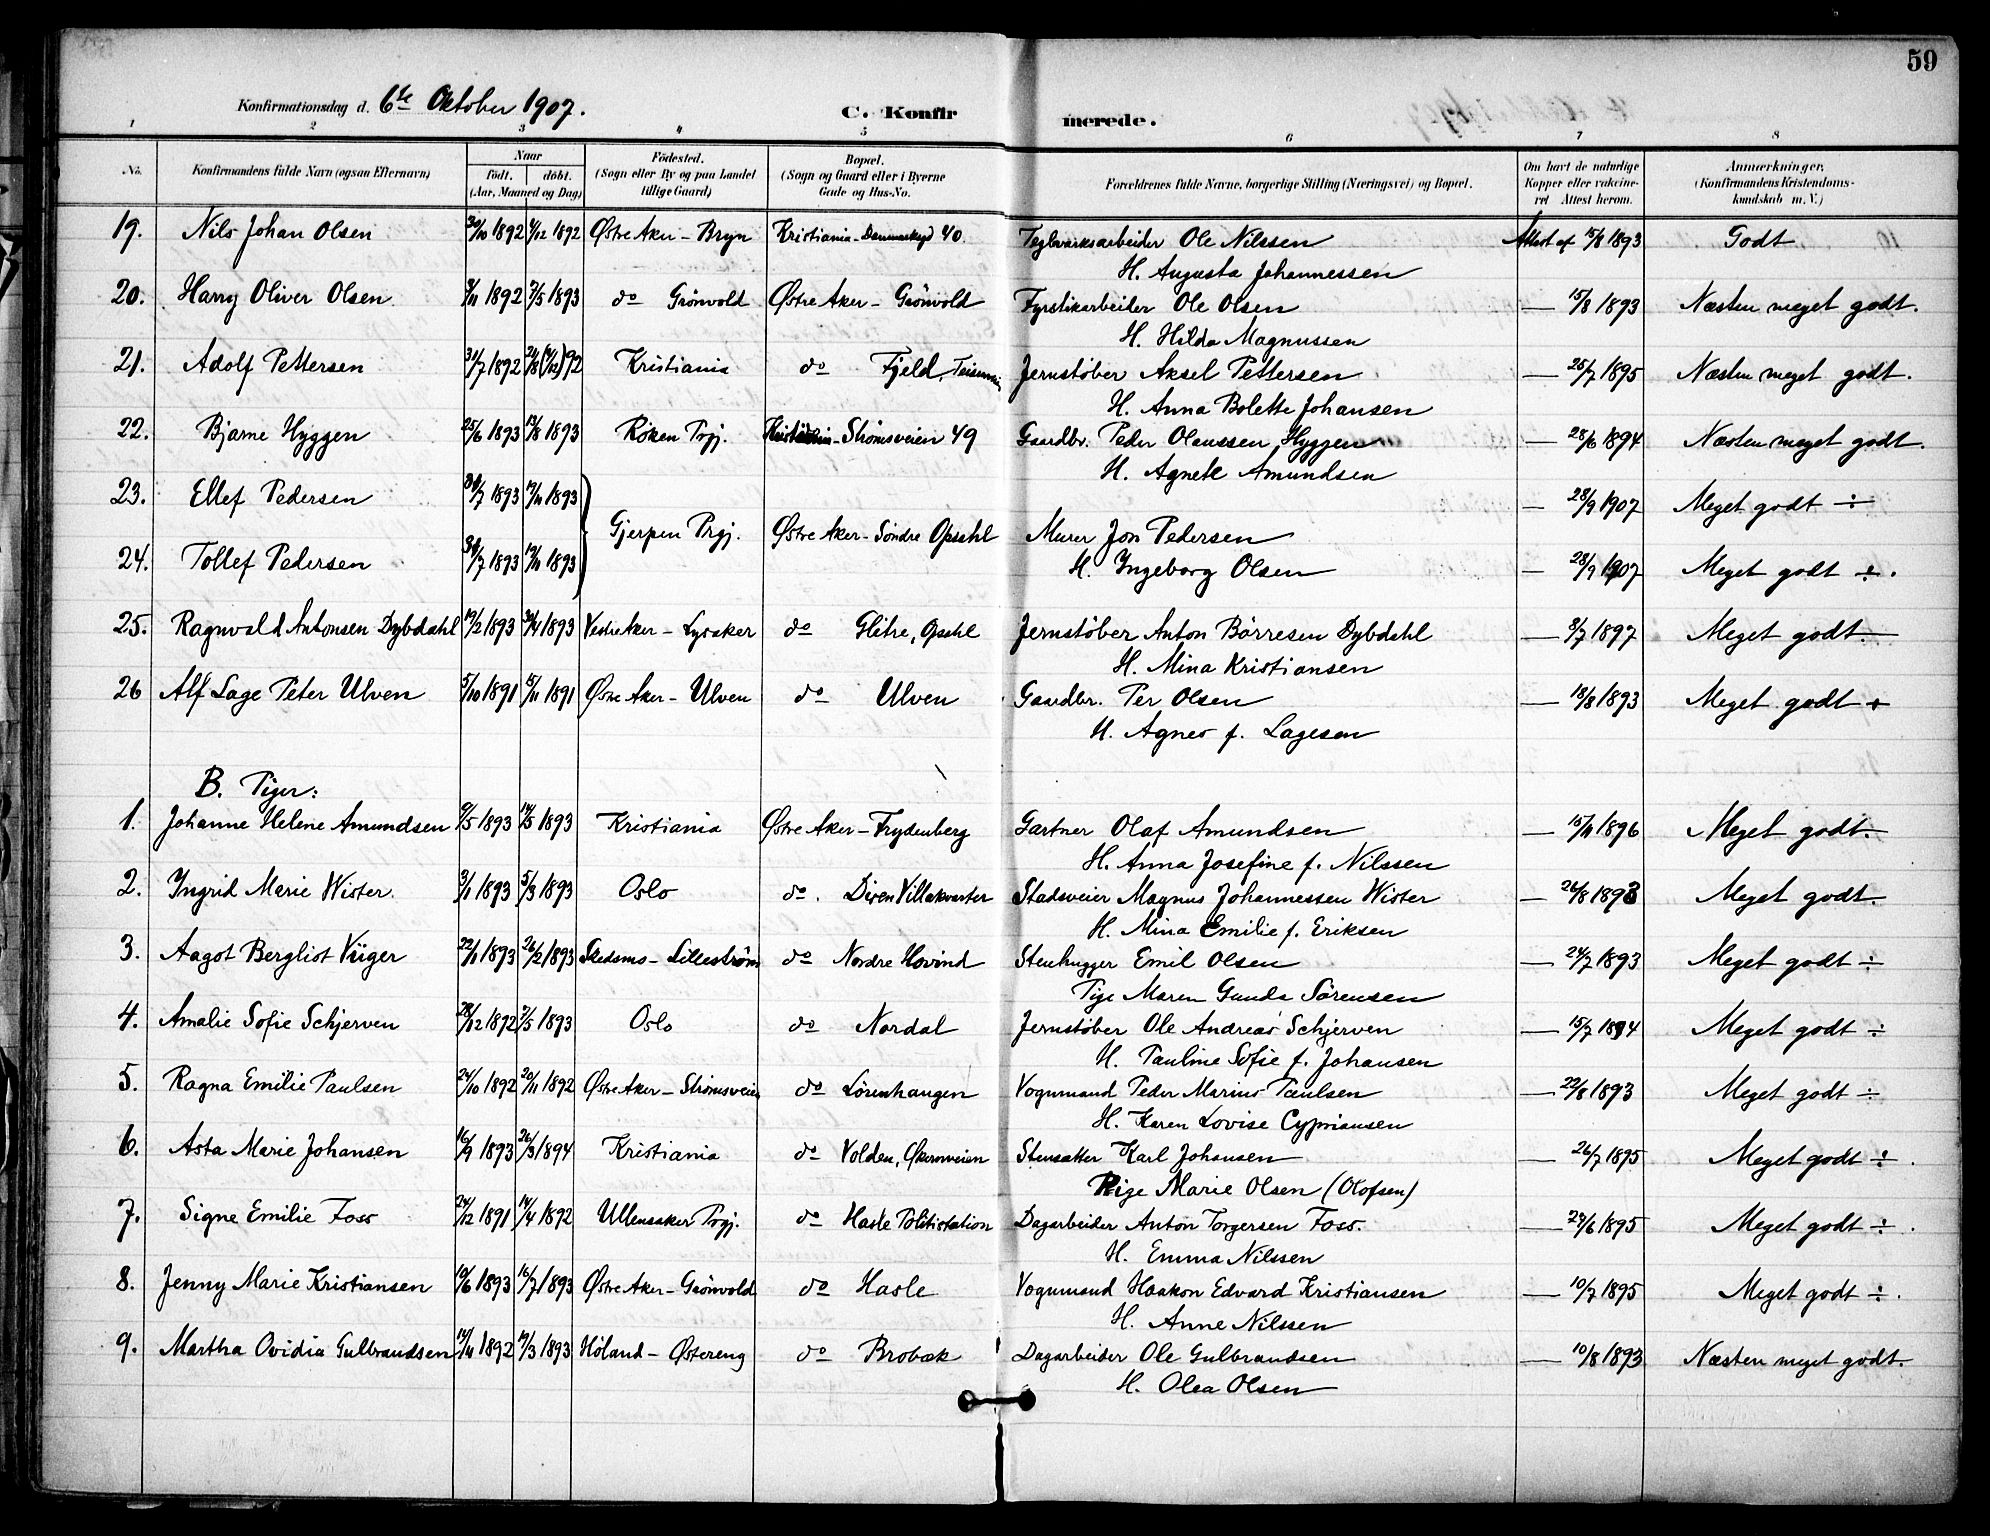 59
Konfirmationsdag d. 6te Oktober 1907.
C. Konfirmerede.
1 2 3 4 5 6 7 8
No. Konfirmandens fulde Navn (ogsaa Efternavn) Naar födt. döbt. (Aar, Maaned og Dag) Födested. (Sogn eller By og paa Landet tillige Gaard) Bopæl. (Sogn og Gaard eller i Byerne Gade og Hus-No. Forældrenes fulde Navne, borgerlige Stilling (Næringsvei) og Bopæl. Om havt de naturlige Kopper eller vakcineret Attest herom. Anmærkninger, (Konfirmandens Kristendomskundskab m. V.)
19. Nils Johan Olsen 30/10 1892 4/12 1892 Østre Aker - Bryn Kristiania - 40. Teglværksarbeider Ole Nilssen Attest af 15/8 1893 Godt
H. Augusta Johannessen
20. Harry Oliver Olsen 3/11 1892 7/5 1893 do Grönvold Østre Aker - Grönvold Fyrstikarbeider Ole Olsen — 15/8 1893 Næsten meget godt.
H. Hilda Magnussen
21. Adolf Pettersen 31/7 1892 Kristiania do Fjeld, Jernstøber Aksel Pettersen — 25/7 1895 Næsten meget godt.
H. Anna Bolette Johansen
22. Bjarne Hyggen 25/6 1893 13/8 1893 Röken Prgj. Kristiania - Strömsveien 49 Gaardbr. Peder Olaussen Hyggen — 28/6 1894 Næsten meget godt.
H. Agnete Amundsen
23. Ellef Pedersen 31/7 1893 19/11 1893 — 28/9 1907 Meget godt ÷
Gjerpen Prgj. Østre Aker - Söndre Opsahl Murer Jon Pedersen
24. Tollef Pedersen 31/7 1893 19/11 1893 H. Ingeborg Olsen — 28/9 1907 Meget godt ÷.
25. Ragnvald Antonsen Dybdahl 19/2 1893 30/4 1893 Vestre Aker - Lysaker do Glitre, Opsahl Jernstøber Anton Börresen Dybdahl — 8/7 1897 Meget godt.
H. Mina Kristiansen
26 Alf Lage Peter Ulven 5/10 1891 15/11 1891 Østre Aker - Ulven do Ulven Gaardbr. Per Olsen — 18/8 1893 Meget godt +
H. Agnes f. Lagesen
B. Piger:
1. Johanne Helene Amundsen 9/5 1893 14/5 1893 Kristiania Østre Aker - Frydenberg Gartner Olaf Amundsen — 15/11 1896 Meget godt.
H. Anna Josefine f. Nilssen
2. Ingrid Marie Wister. 3/1 1893 5/3 1893 Oslo do. Disen Villakvarter Stadsveier Magnus Johannessen Wister — 26/8 1893 Meget godt.
H. Mina Emilie f. Eriksen
3. Aagot Bergliot Viiger 22/1 1893 26/2 1893 Skedsmo - Lilleström do Nordre Hovind Stenhugger Emil Olsen — 24/7 1893 Meget godt ÷
Pige Maren Gunda Sörensen
4. Amalie Sofie Schjerven 28/12 1892 7/5 1893 Oslo do Nordal Jernstøber Ole Andreas Schjerven — 15/7 1894 Meget godt ÷
H. Pauline Sofie f. Johansen
5. Ragna Emilie Paulsen 24/10 1892 20/11 1892 Østre Aker - Strömsveien do Lörenhaugen Vognmand Peder Marius Paulsen — 22/8 1893 Meget godt ÷
H. Karen Lovise Cypriansen
6. Asta Marie Johansen 16/9 1893 26/3 1894 Kristiania do Volden, Økernveien Stensætter Karl Johansen — 26/7 1895 Meget godt ÷.
Pige Marie Olsen (Olofsen)
7. Signe Emilie Foss 24/12 1891 14/4 1892 Ullensaker Prgj. do Hasle Politistation Dagarbeider Anton Torgersen Foss. — 29/6 1895 Meget godt ÷.
H. Emma Nilssen
8. Jenny Marie Kristiansen 10/6 1893 16/7 1893 Østre Aker - Grönvold do Hasle Vognmand Haakon Edvard Kristiansen — 10/7 1895 Meget godt ÷.
H. Anne Nilssen
9. Martha Ovidia Gulbrandsen 14/11 1892 19/3 1893 Höland - Østereng do Brobæk Dagarbeider Ole Gulbrandsen — 10/8 1893 Næsten meget godt.
H. Olea Olsen